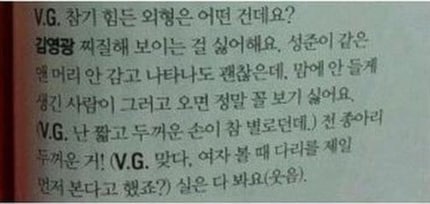 V.G. 참기 힘든 외형은 어떤 건데요?
김영광 찌질해 보이는 걸 싫어해요. 성준이 같은
앤 머리 안 감고 나타나도 괜찮은데, 맘에 안 들게
생긴 사람이 그러고 오면 정말 꼴 보기 싫어요.
(V.G. 난 짧고 두꺼운 손이 참 별로던데.) 전 종아리
두꺼운 거! (V.G. 맞다, 여자 볼 때 다리를 제일
먼저 본다고 했죠?) 실은 다 봐요(웃음).